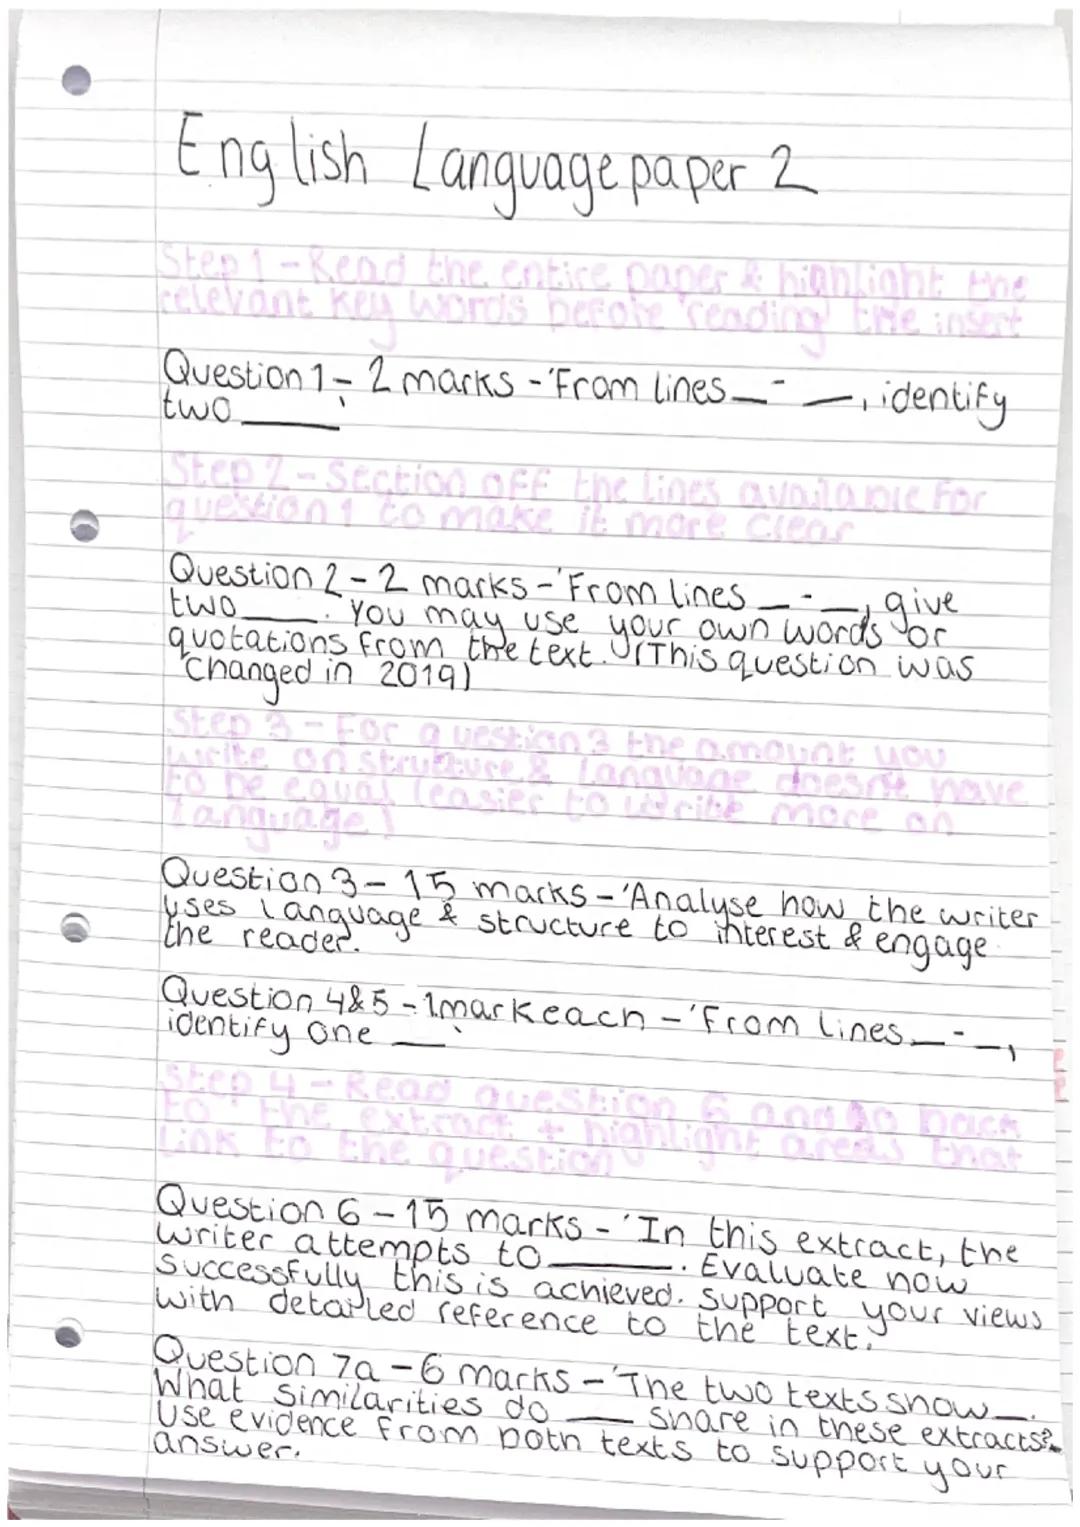 English Language paper 2
Step 1 - Read the entire paper & highlight the
relevant key words before reading the insert
Question 1 - 2 marks - 'From lines _ - _, identify
two ___.'
Step 2 - Section off the lines available for
question 1 to make it more clear
Question 2 - 2 marks - 'From lines _ - _, give
two ___. You may use your own words or
quotations from the text.' (This question was
changed in 2019)
Step 3 - For question 3 the amount you
write on structure & language doesn't have
to be equal (easier to write more on
language)
Question 3 - 15 marks - 'Analyse how the writer
uses language & structure to interest & engage
the reader.
Question 4&5 - 1 mark each - 'From lines _ - _,
identify one __.'
Step 4 - Read question 6 and go back
to the extract + highlight areas that
link to the question
Question 6 - 15 marks - 'In this extract, the
writer attempts to ___. Evaluate how
successfully this is achieved. Support your views
with detailed reference to the text.'
Question 7a - 6 marks - 'The two texts show _.
What similarities do __ share in these extracts?
Use evidence from both texts to support your
answer.